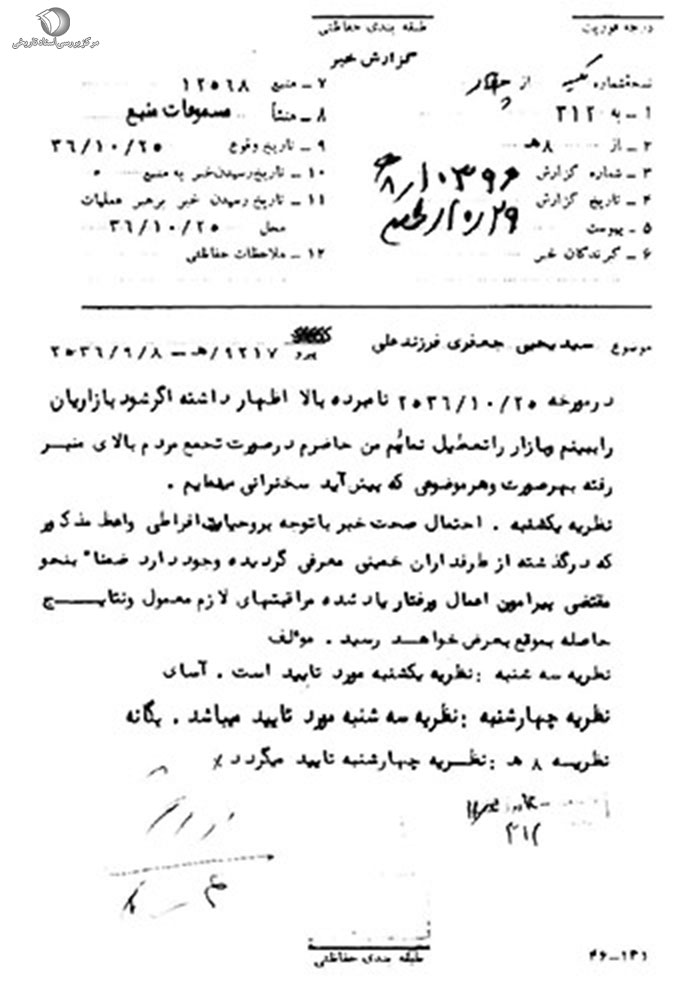 مرکز بررسی اسناد تاریخی
درجه فوریت
طبقه بندی حفاظتی
گزارش خبر
نسخه شماره یکم از چهار
۱ ـ به ۳۱۲
۲ ـ از ۸ هـ
۳ ـ شماره گزارش ۱۰۳۹۶ / ۸هـ
۴ ـ تاریخ گزارش
۵ ـ پیوست
۶ ـ گیرندگان خبر
۷ ـ منبع ۱۲۵۶۸
۸ ـ منشأ مسموعات منبع
۹ ـ تاریخ وقوع ۳۶/۱۰/۲۵
۱۰ ـ تاریخ رسیدن خبر به منبع
۱۱ ـ تاریخ رسیدن خبر برهبر عملیات
محل ۳۶/۱۰/۲۵
۱۲ ـ ملاحظات حفاظتی
موضوع سیدیحیی جعفری فرزند علی
پیرو ۹۲۱۷/هـ ـ ۲۵۳۶/۹/۸
در مورخه ۲۵۳۶/۱۰/۲۵ نامبرده بالا اظهار داشته اگر شود بازاریان
را ببینم وبازار را تعطیل نمائیم من حاضرم در صورت تجمع مردم بالای منبر
رفته بهر صورت وهر موضوعی که پیش آید سخنرانی میمایم .
نظریه یکشنبه . احتمال صحت خبر با توجه بروحیات افراطی واعظ مذکور
که در گذشته از طرفداران خمینی معرفی گردیده وجود دارد ضمنا" بنحو
مقتضی پیرامون اعمال ورفتار یاد شده مراقبتهای لازم معمول ونتایج
حاصله بموقع بعرض خواهد رسید . مؤلف
نظریه سه شنبه : نظریه یکشنبه مورد تایید است . آسای
نظریه چهارشنبه : نظریه سه شنبه مورد تایید میباشد . یگانه
نظریه ۸ هـ : نظریه چهارشنبه تایید میگردد
۳۱۲
طبقه بندی حفاظتی
۴۶-۱۳۱